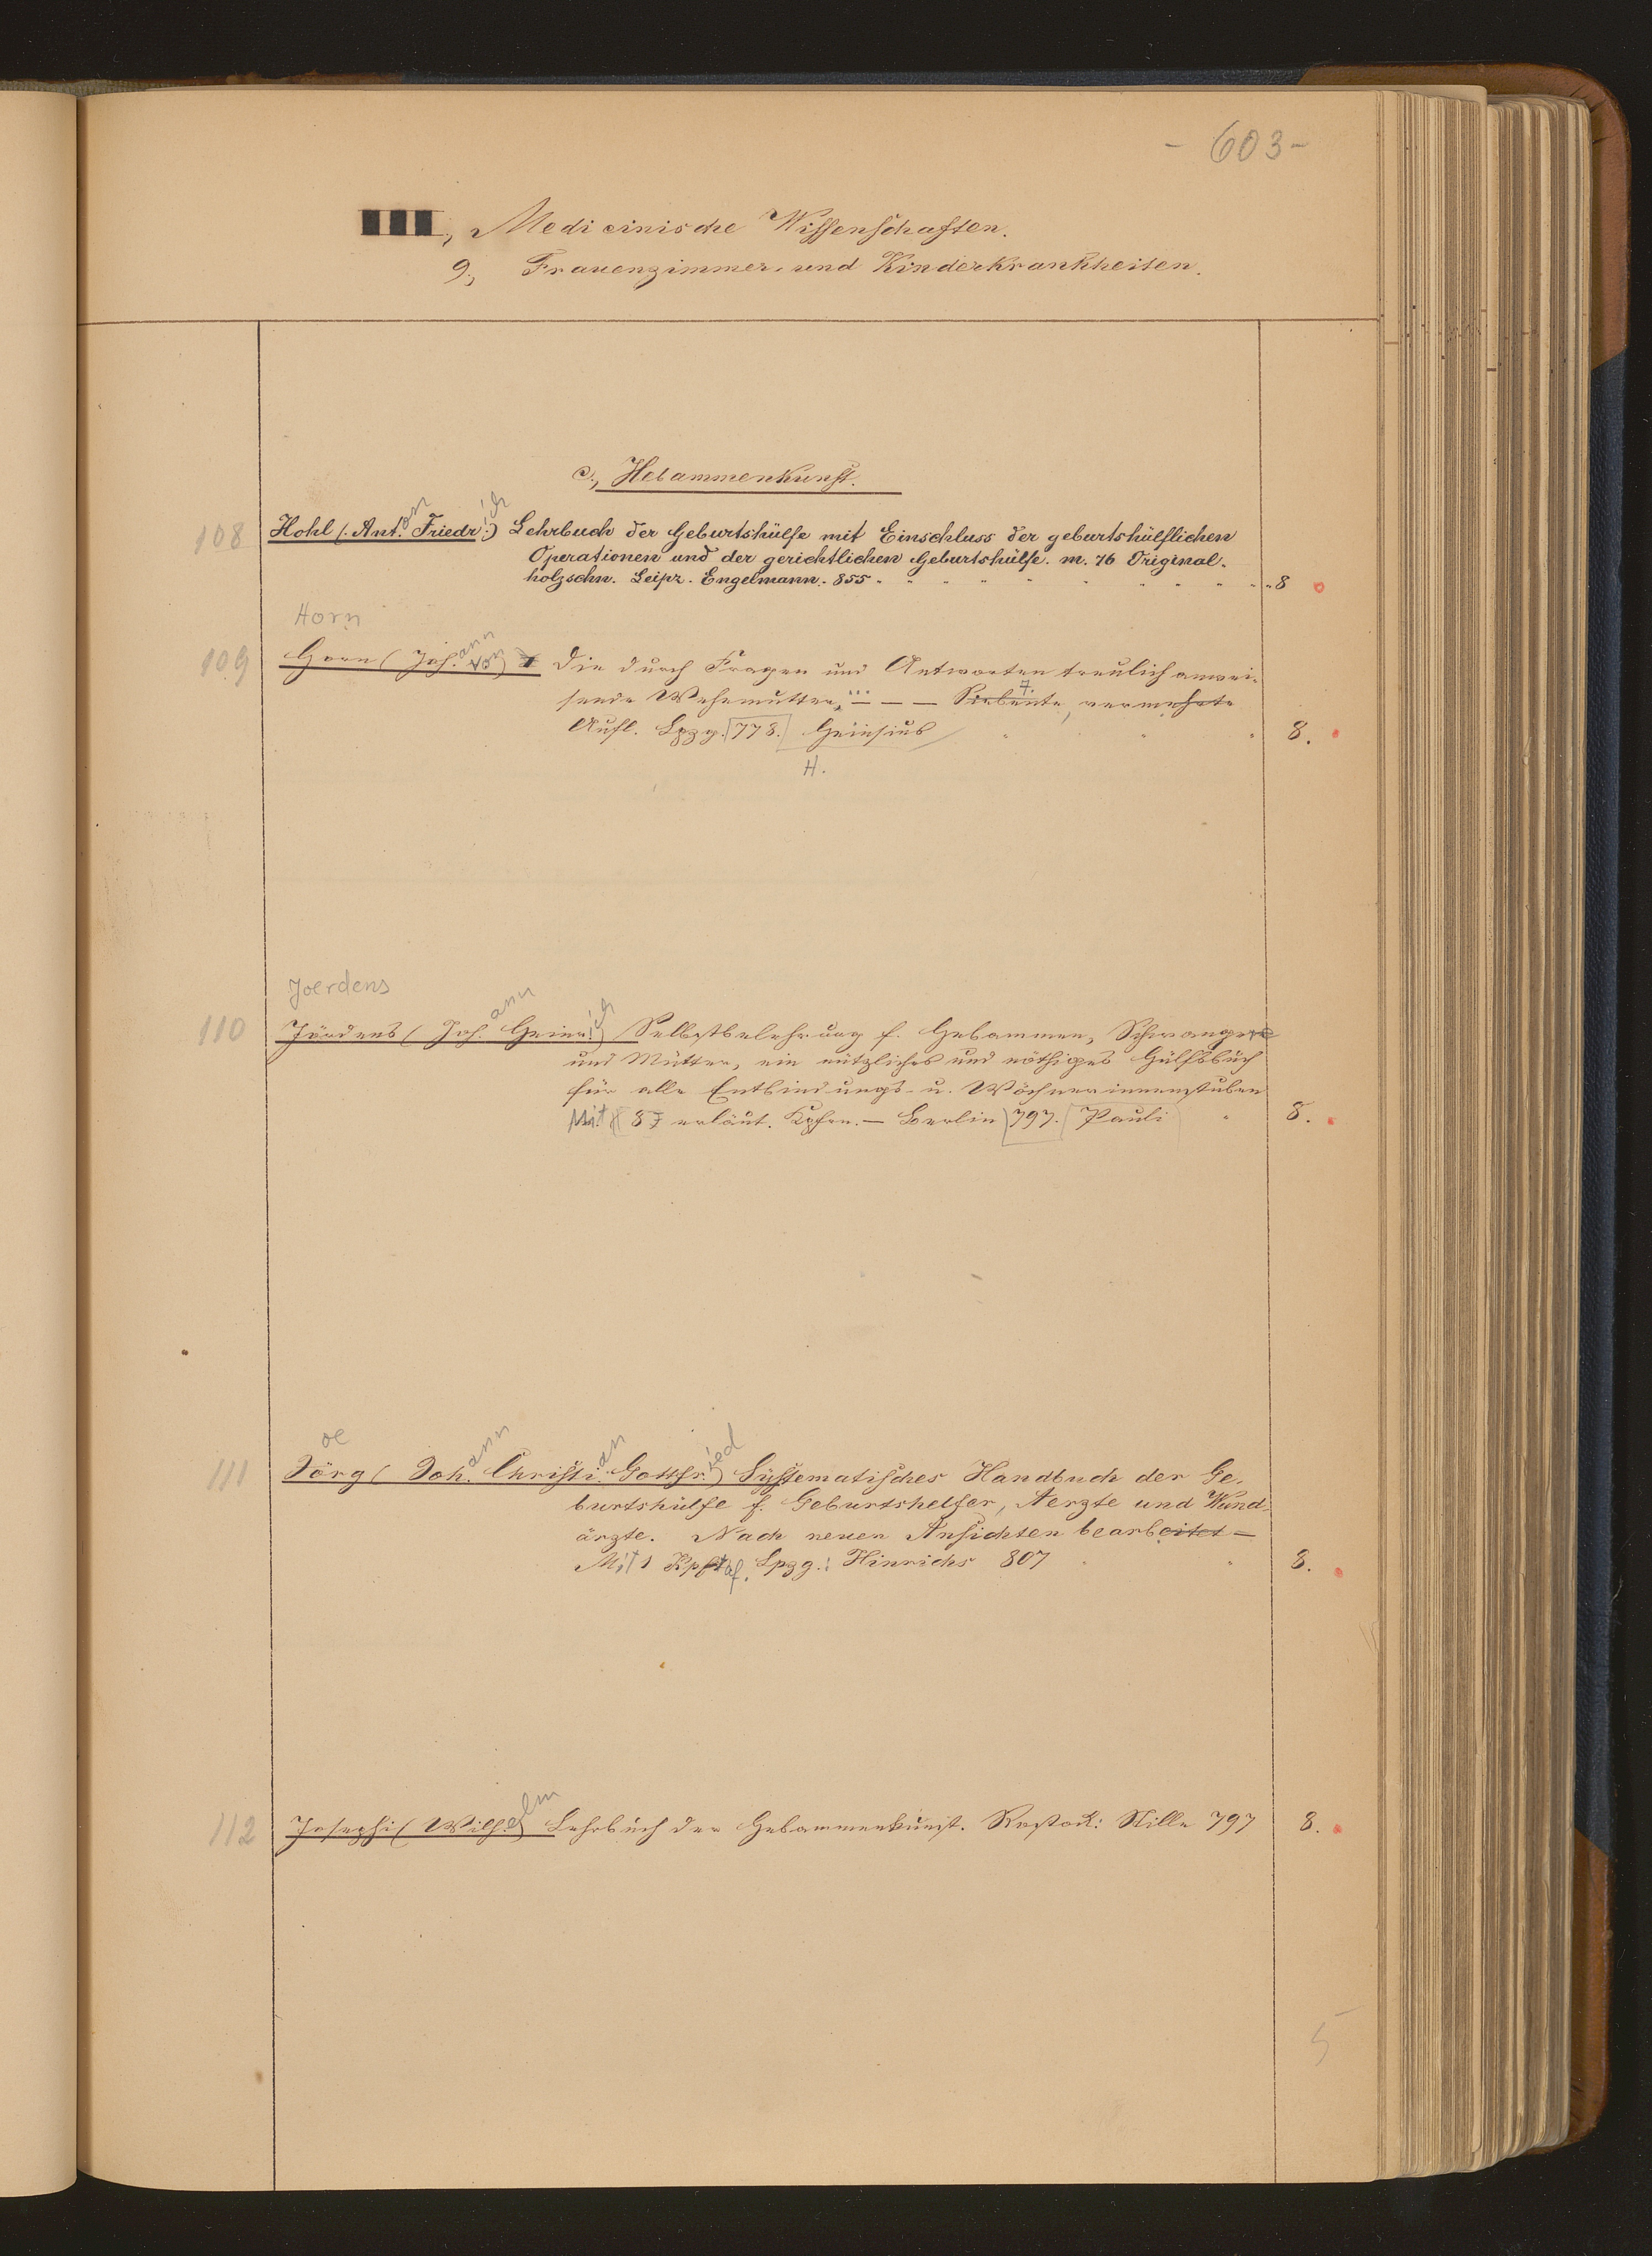 - 603 -
III., Medicinische Wissenschaften.
9., Frauenzimmer- und Kinderkrankheiten.
c., Hebammenkunst.
108 Hohl (Ant.on Friedr.ich) Lehrbuch der Geburtshülfe mit Einschluss der geburtshülflichen
Operationen und der gerichtlichen Geburtshülfe. m. 76 Original-
holzschn. Leipz. Engelmann. 855 8
Horn
109 Horn (Joh.ann von) Die durch Fragen und Antworten treulich anwei-
sende Wehemutter, ... — — — Siebente 7., vermehrte
Aufl. Lpzg. 778. Heinsius 8.
H.
Joerdens
110 Jördens (Joh.ann Heinr.ich) Selbstbelehrung f. Hebammen, Schwangere
und Mütter, ein nützliches und nöthiges Hülfsbuch
für alle Entbindungs- u. Wöchnerinnenstuben
Mit 8 erläut. Kpfrn. — Berlin 797. Pauli 8.
oe
111 Jörg (Joh.ann Christi.an Gottfr.ied) Systematisches Handbuch der Ge-
burtshülfe f. Geburtshelfer, Aerzte und Wund-
ärzte. Nach neuen Ansichten bearbeitet —
Mit 1 Kpftaf. Lpzg.: Hinrichs 807 8.
112 Josephi (Wilh.elm) Lehrbuch der Hebammenkunst. Rostock: Stiller 797 8.
5